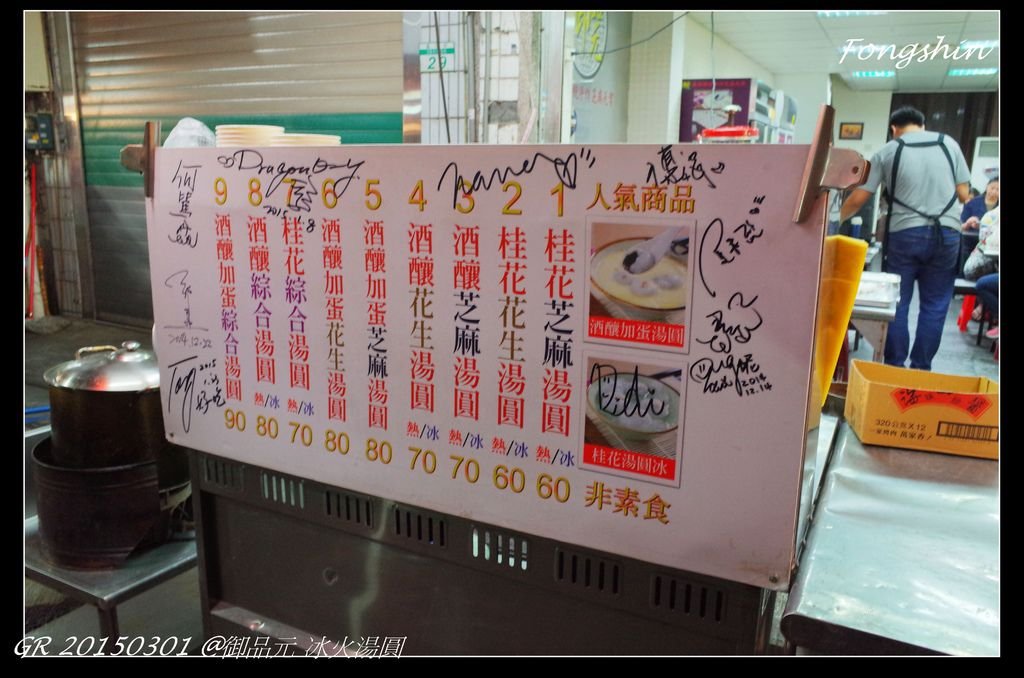 Fongshin
29
人氣商品
酒釀加蛋湯圓
桂花湯圓冰
非素食
1 桂花芝麻湯圓 熱/冰 60
2 桂花花生湯圓 熱/冰 60
3 酒釀芝麻湯圓 熱/冰 70
4 酒釀花生湯圓 熱/冰 70
5 酒釀加蛋芝麻湯圓 80
6 酒釀加蛋花生湯圓 80
7 桂花綜合湯圓 熱/冰 70
8 酒釀綜合湯圓 熱/冰 80
9 酒釀加蛋綜合湯圓 90
Dragon
2014.12.22
Didi
2014
12.14
320公克X12
GR 20150301 @御品元 冰火湯圓